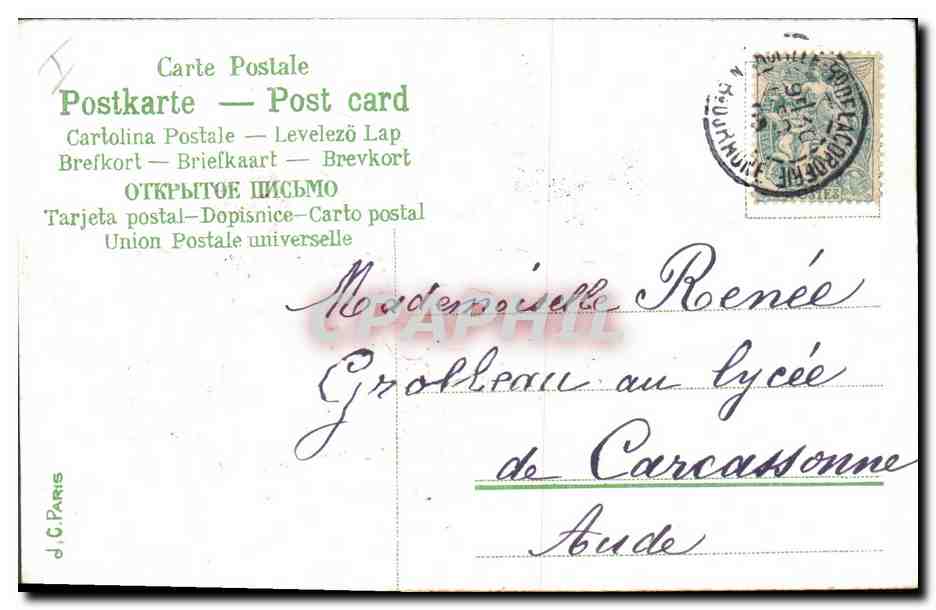 Carte Postale
Postkarte — Post card
Cartolina Postale — Levelező Lap
Brefkort — Briefkaart — Brevkort
ОТКРЫТОЕ ПИСЬМО
Tarjeta postal—Dopisnice—Carto postal
Union Postale universelle
Mademoiselle Renée
CPAPHIL
Grolleau au lycée
de Carcassonne
Aude
J.C. PARIS